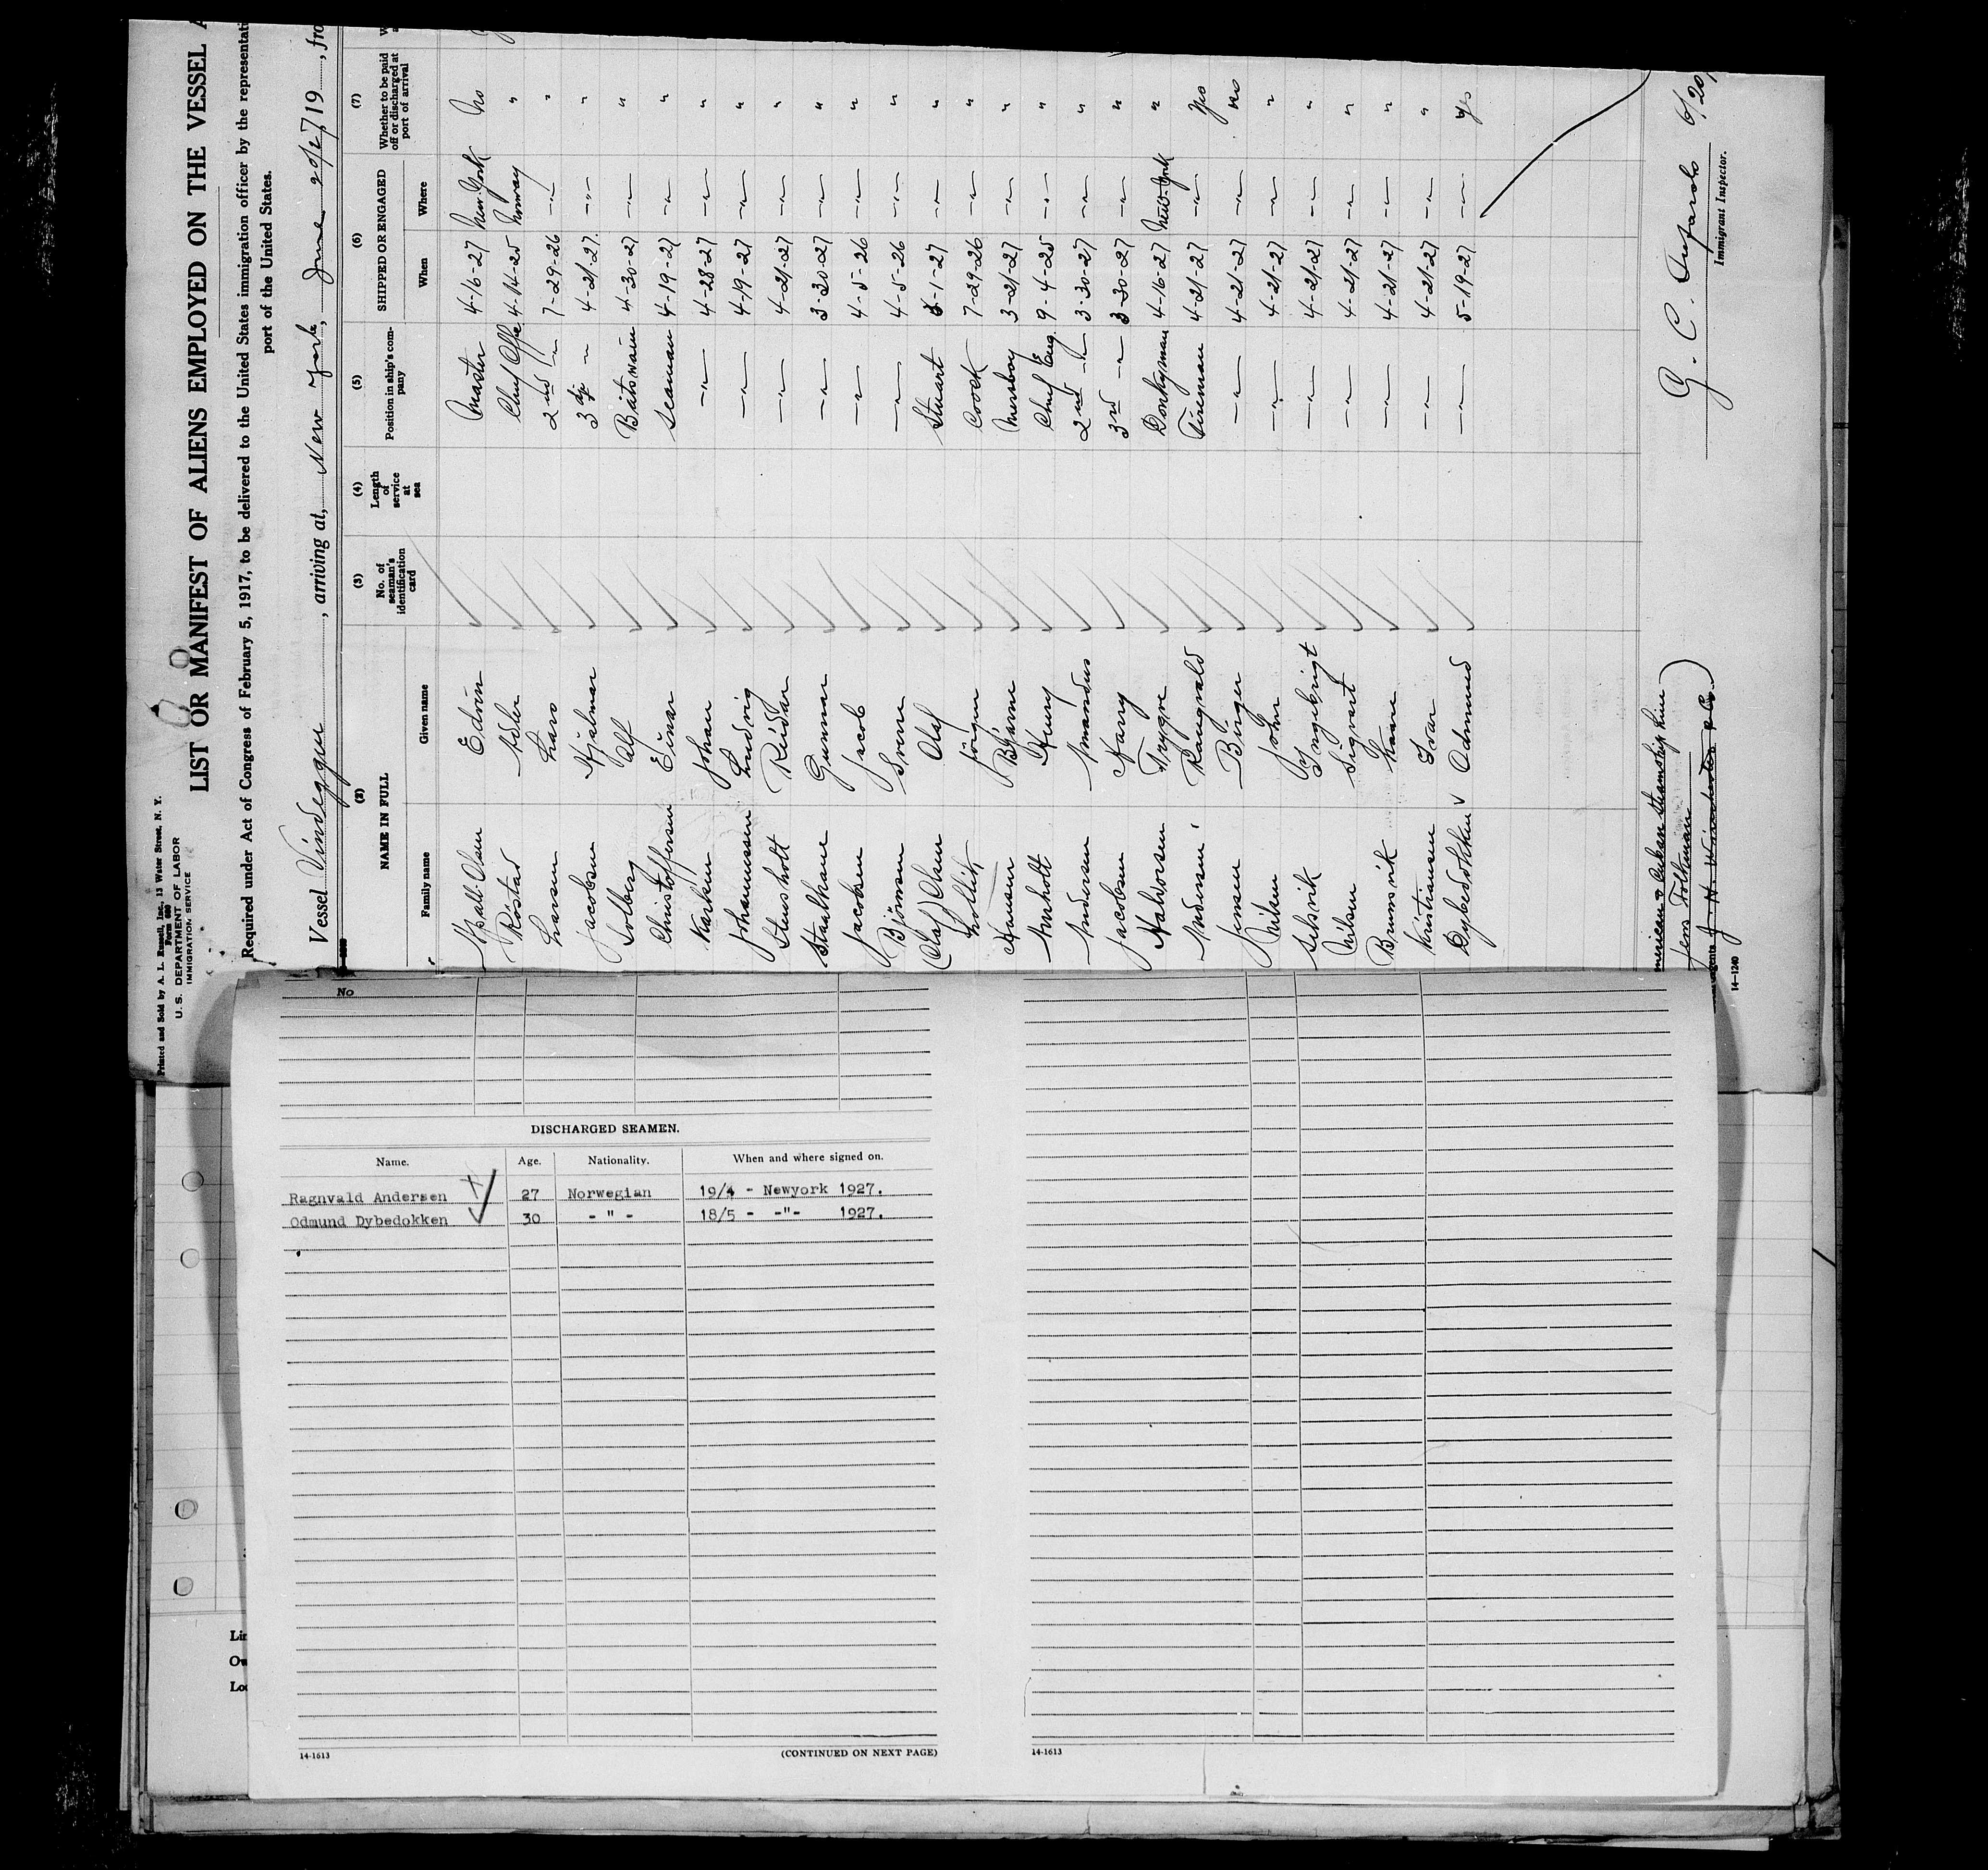 Printed and Sold by A. L. Russell, Inc., 13 Water Street, N. Y.
Form 689
U. S. DEPARTMENT OF LABOR
IMMIGRATION SERVICE
LIST OR MANIFEST OF ALIENS EMPLOYED ON THE VESSEL
Required under Act of Congress of February 5, 1917, to be delivered to the United States immigration officer by the representati
port of the United States.
Vessel Vindeggen, arriving at, New York, June 20/27 19, fro
(2) NAME IN FULL (3) No. of seaman's identification card (4) Length of service at sea (5) Position in ship's company (6) SHIPPED OR ENGAGED (7) Whether to be paid off or discharged at port of arrival
Family name Given name When Where
Olsen Edvin Master 4-16-27 New York No
Rostad Adler Chief Offic 4-14-25 Norway "
Larsen Lars 2nd -"- 7-29-26 -"- "
Jacobsen Hjalmar 3 -"- 4-21-27 -"- "
Solberg Alf Båtsman 4-30-27 -"- "
Christoffersen Einar Seaman 4-19-27 -"- "
Karlsen Johan -"- 4-28-27 -"- "
Johannessen Ludvig -"- 4-19-27 -"- "
Stensholt Reidar -"- 4-21-27 -"- "
Staalhane Gunnar -"- 3-30-27 -"- "
Jacobsen Jacob -"- 4-5-26 -"- "
Björnsen Sverre -"- 4-5-26 -"- "
(Olaf) Olsen Olaf Stuart -1-27 -"- "
Jörgen Coock 7-29-26 -"- "
Hansen Bjarne Messboy 3-21-27 -"- "
Amholt Henry Chief Eng. 9-4-25 -"- "
Andersen Amandus 2nd -"- 3-30-27 -"- "
Jacobsen Harry 3rd -"- 3-30-27 -"- "
Halvorsen Trygve Donkeyman 4-16-27 New-York "
Andersen Rangvald Fireman 4-21-27 -"- Yes
Jensen Birger -"- 4-21-27 -"- No
Nilsen John -"- 4-21-27 -"- "
Selsvik Ingebrigt -"- 4-21-27 -"- "
Nilsen Sigvart -"- 4-21-27 -"- "
Brunsvik Kaare -"- 4-21-27 -"- "
Kristiansen Ivar -"- 4-21-27 -"- "
Dybedokken v Odmund -"- 5-19-27 -"- yes
merican & Cuban Steamship Line
Agents J. H. Winchester & Co.
14-1240
G. C. 6/20/
Immigrant Inspector.
No
DISCHARGED SEAMEN.
Name. Age. Nationality. When and where signed on.
Ragnvald Andersen 27 Norwegian 19/4 - Newyork 1927.
Odmund Dybedokken 30 - " - 18/5 - -"- 1927.
Lin
Ow
Loc
14-1613 (CONTINUED ON NEXT PAGE)
14-1613